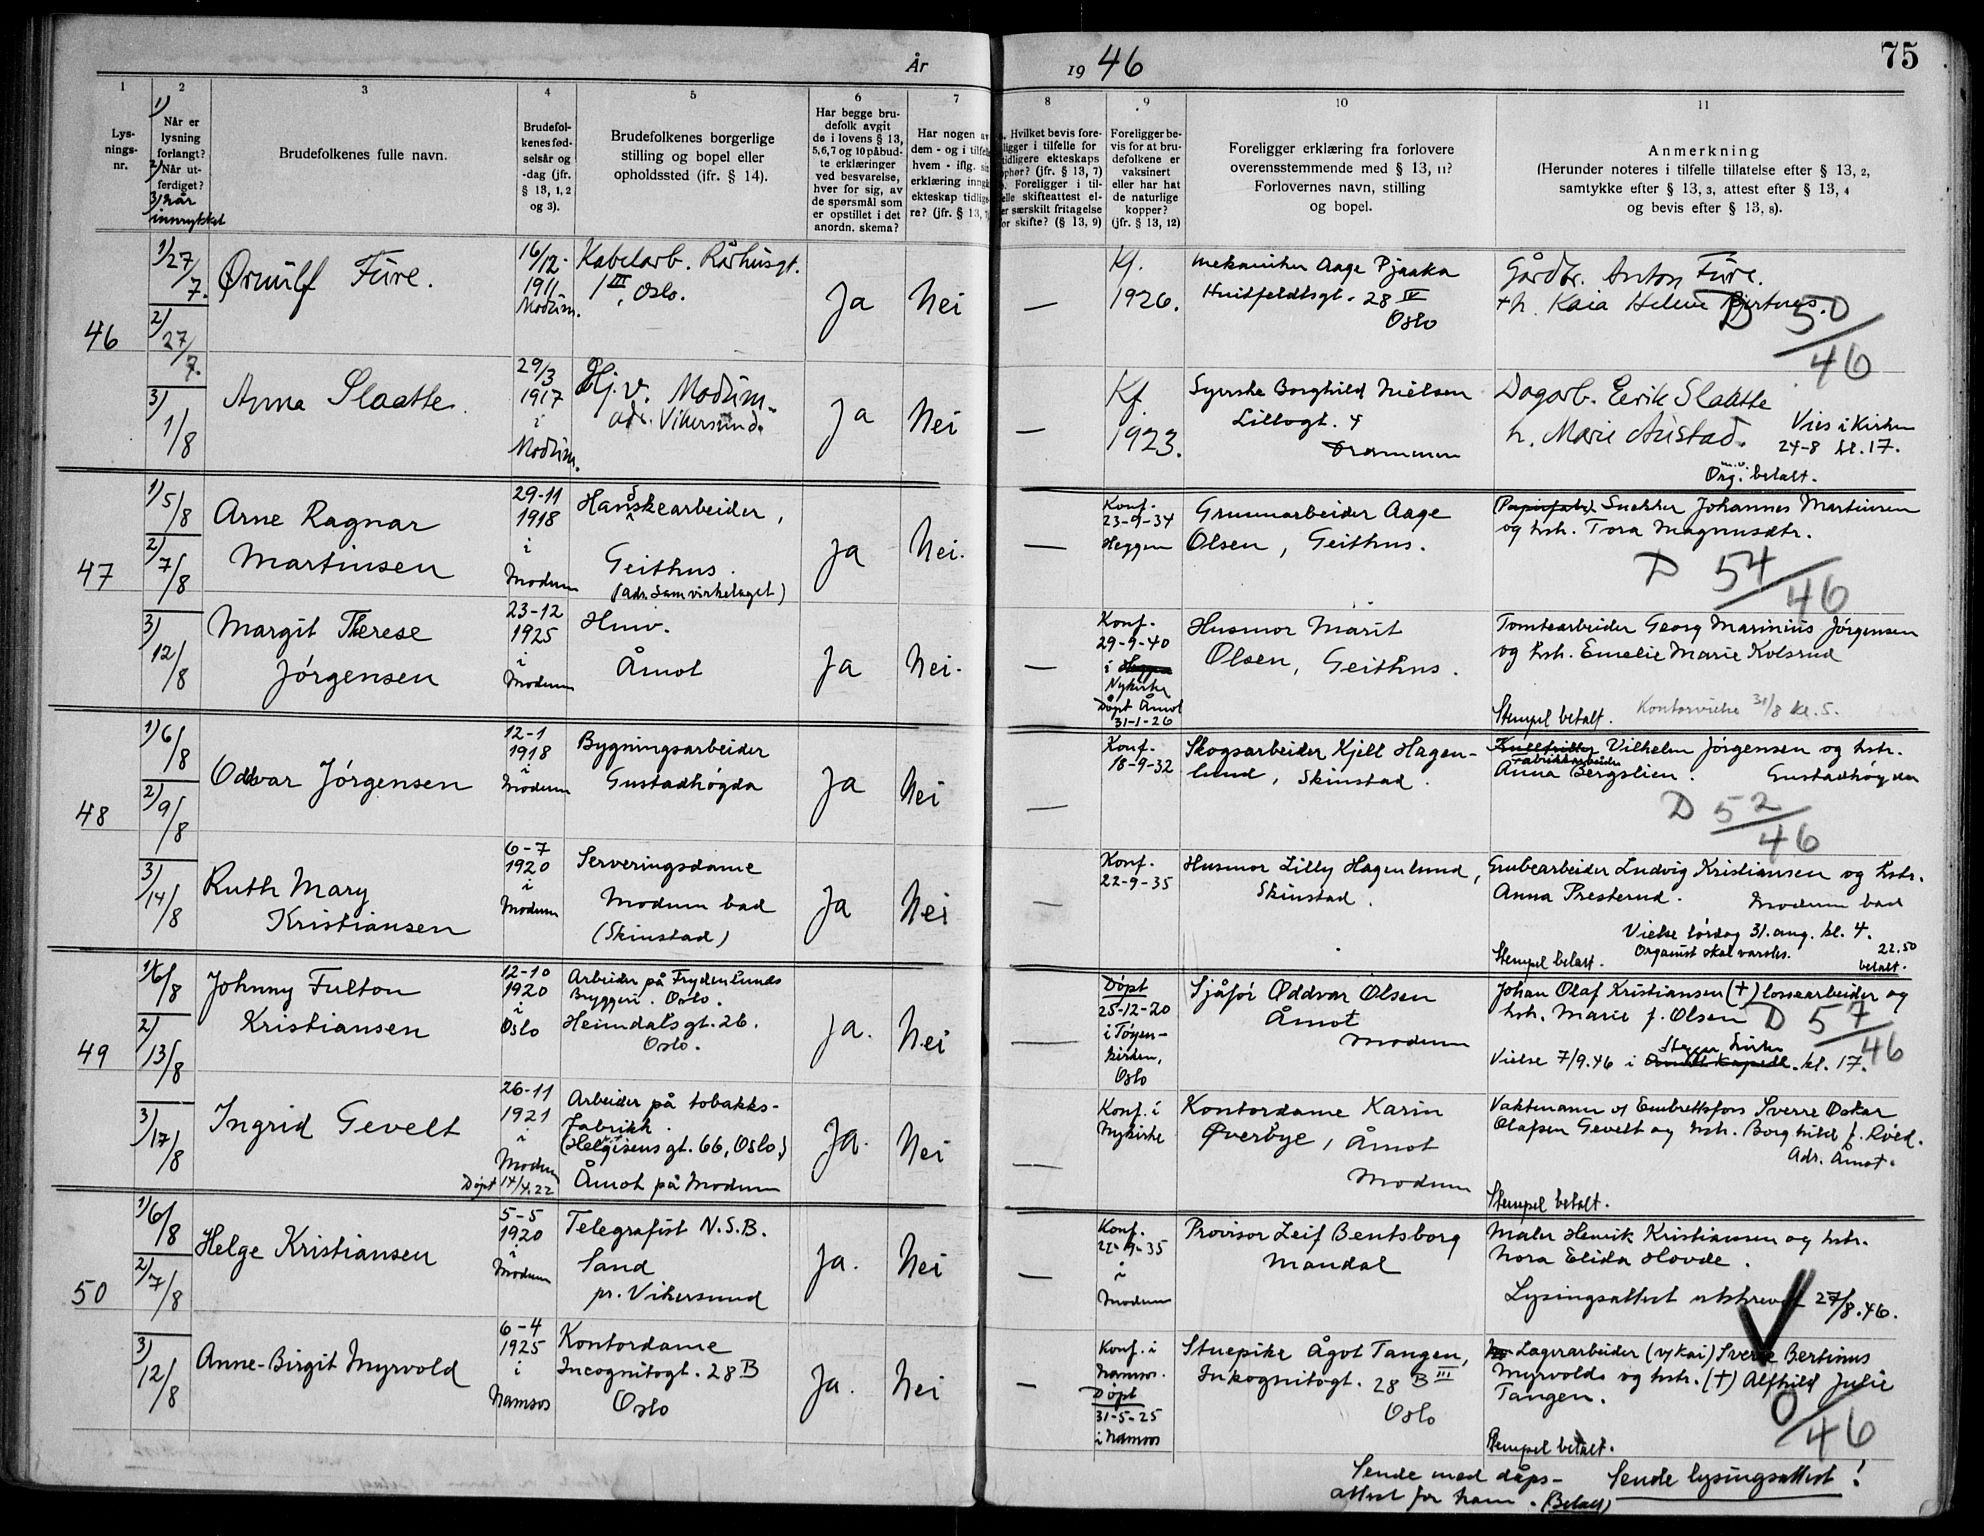 År
19 46
75
1
2
3
4
5
6
7
8
9
10
11
Lys-
nings-
nr.
1) Når er
lysning
forlangt?
2) Når ut-
ferdiget?
3) når
innrykket
Brudefolkenes fulle navn.
Brudefol-
kenes fød-
selsår og
-dag (jfr.
§ 13, 1, 2
og 3).
Brudefolkenes borgerlige
stilling og bopel eller
opholdssted (jfr. § 14).
Har begge bru-
defolk avgit
de i lovens § 13,
5,6,7 og 10 påbud-
te erklæringer
ved besvarelse,
hver for sig, av
de spørsmål som
er opstillet i det
anordn. skema?
Har nogen av
dem - og i tilfelle
hvem - iflg. sin
erklæring inngå
ekteskap tidlige-
re? (jfr. § 13,
Hvilket bevis fore-
ligger i tilfelle for
tidligere ekteskaps
ophør? (jfr. § 13, 7)
Foreligger i til-
felle skifteattest el-
ler særskilt fritagelse
for skifte? (§ 13, 9)
Foreligger be-
vis for at bru-
defolkene er
vaksinert
eller har hat
de naturlige
kopper?
(jfr. § 13, 12)
Foreligger erklæring fra forlovere
overensstemmende med § 13, 11?
Forlovernes navn, stilling
og bopel.
Anmerkning
(Herunder noteres i tilfelle tillatelse efter § 13, 2,
samtykke efter § 13, 3, attest efter § 13, 4
og bevis efter § 13, 8).
46
1) 27/7.
2) 27/7.
3) 1/8
Ørnulf Fure.
16/12-
1911
Modum.
Kabelarb. Rådhusgt.
1 III, Oslo.
Ja
Nei
—
Kf.
1926.
Mekaniker Aage Pjaaka
Huitfeldtsgt. 28 IV
Oslo
Gårdbr. Anton Fure.
+h. Kaia Helene
D 50/46
Anna Slaatte.
29/3
1917
i
Modum.
Hj.v. Modum.
adr. Vikersund.
Ja
Nei
—
Kf
1923.
Syerske Borghild Nielsen
Lillogt. 4
Drammen
Dagarb. Eerik Slaatte
h. Marie Austad.
Vies i Kirken
24-8 kl. 17.
Org. m.v. betalt.
47
1) 5/8
2) 7/8
3) 12/8
Arne Ragnar
Martinsen
29-11
1918
i
Modum
Hanskearbeider,
Geithus.
(adr. Samvirkelaget)
Ja
Nei.
—
Konf.
23-9-34
Heggen
Gruvearbeider Aage
Olsen, Geithus.
Snekker Johannes Martinsen
og hstr. Tora Magnusdtr.
D 54/46
Margit Therese
Jørgensen
23-12
1925
i
Modum
Hmv.
Åmot
Ja
Nei.
—
Konf.
29-9-40
i Heggen
Nykirke
Døpt Åmot
31-1-26
Husmor Marit
Olsen, Geithus.
Tomtearbeider Georg Marinius Jørgensen
og hstr. Emelie Marie Kolsrud
Stempel betalt. Kontorvielse 31/8 kl. 5.
48
1) 6/8
2) 9/8
3) 14/8
Oddvar Jørgensen
12-1
1918
i
Modum
Bygningsarbeider
Gustadhøgda
Ja
Nei
—
Konf.
18-9-32
Skogsarbeider Kjell Hagen-
lund, Skinstad.
Vilhelm Jørgensen og hstr.
Fabrikkarbeider
Anna Bergslien. Gustadhøgden
D 52/46
Ruth Mary
Kristiansen
6-7
1920
i
Modum
Serveringsdame
Modum bad
(Skinstad)
Ja
Nei
—
Konf.
22-9-35
Husmor Lilly Hagenlund,
Skinstad.
Grubearbeider Ludvig Kristiansen og hstr.
Anna Presterud. Modum bad
Vielse lørdag 31. aug. kl. 4.
Stempel betalt. Organist skal varsles. 22.50
betalt.
49
1) 6/8
2) 13/8
3) 17/8
Johnny Fulton
Kristiansen
12-10
1920
i
Oslo
Arbeider på Frydenlunds
Bryggeri. Oslo.
Heimdalsgt. 26.
Oslo.
Ja.
Nei
—
Døpt
25-12-20
i Tøyen-
kirken,
Oslo
Sjåfør Oddvar Olsen
Åmot
Modum
Johan Olaf Kristiansen (+) lossearbeider og
hstr. Marie f. Olsen
D 57/46
Vielse 7/9.46 i Heggen kirke Åmot kapell. kl. 17.
Ingrid Gevelt
26-11
1921
i
Modum
Døpt 14/4.22
Arbeider på tobakks-
Fabrikk.
(Helgesens gt. 66, Oslo.)
Åmot på Modum
Ja.
Nei
—
Konf. i
Nykirke
Kontordame Karin
Øverbye, Åmot
Modum
Vaktmann v/ Embretsfoss Sverre Oskar
Olafsen Gevelt og hstr. Borghild f. Røed.
Adr. Åmot.
Stempel betalt.
50
1) 6/8
2) 7/8
3) 12/8
Helge Kristiansen
5-5
1920
i
Modum
Telegrafist N.S.B.
Sand
pr. Vikersund
Ja.
Nei
—
Konf.
22-9-35
i
Modum
Provisor Leif Bentsborg
Mandal
Maler Henrik Kristiansen og hstr.
Nora Elida Hovde.
Lysingsattest utskrevet 27/8.46.
Anne-Birgit Myrvold
6-4
1925
i
Namsos
Kontordame
Incognitogt. 28 B
Oslo
Ja.
Nei
—
Konf. i
Namsos.
Døpt
31-5-25
i Namsos
Stuepike Ågot Tangen,
Inkognitogt. 28 B III
Oslo
Lagerarbeider (v/kai) Sverre Bertinus
Myrvold og hstr. (+) Alfhild Julie
Tangen.
0/46
Stempel betalt.
Sende med dåps-
attest for ham. (Betalt)
Sende lysingsattest!